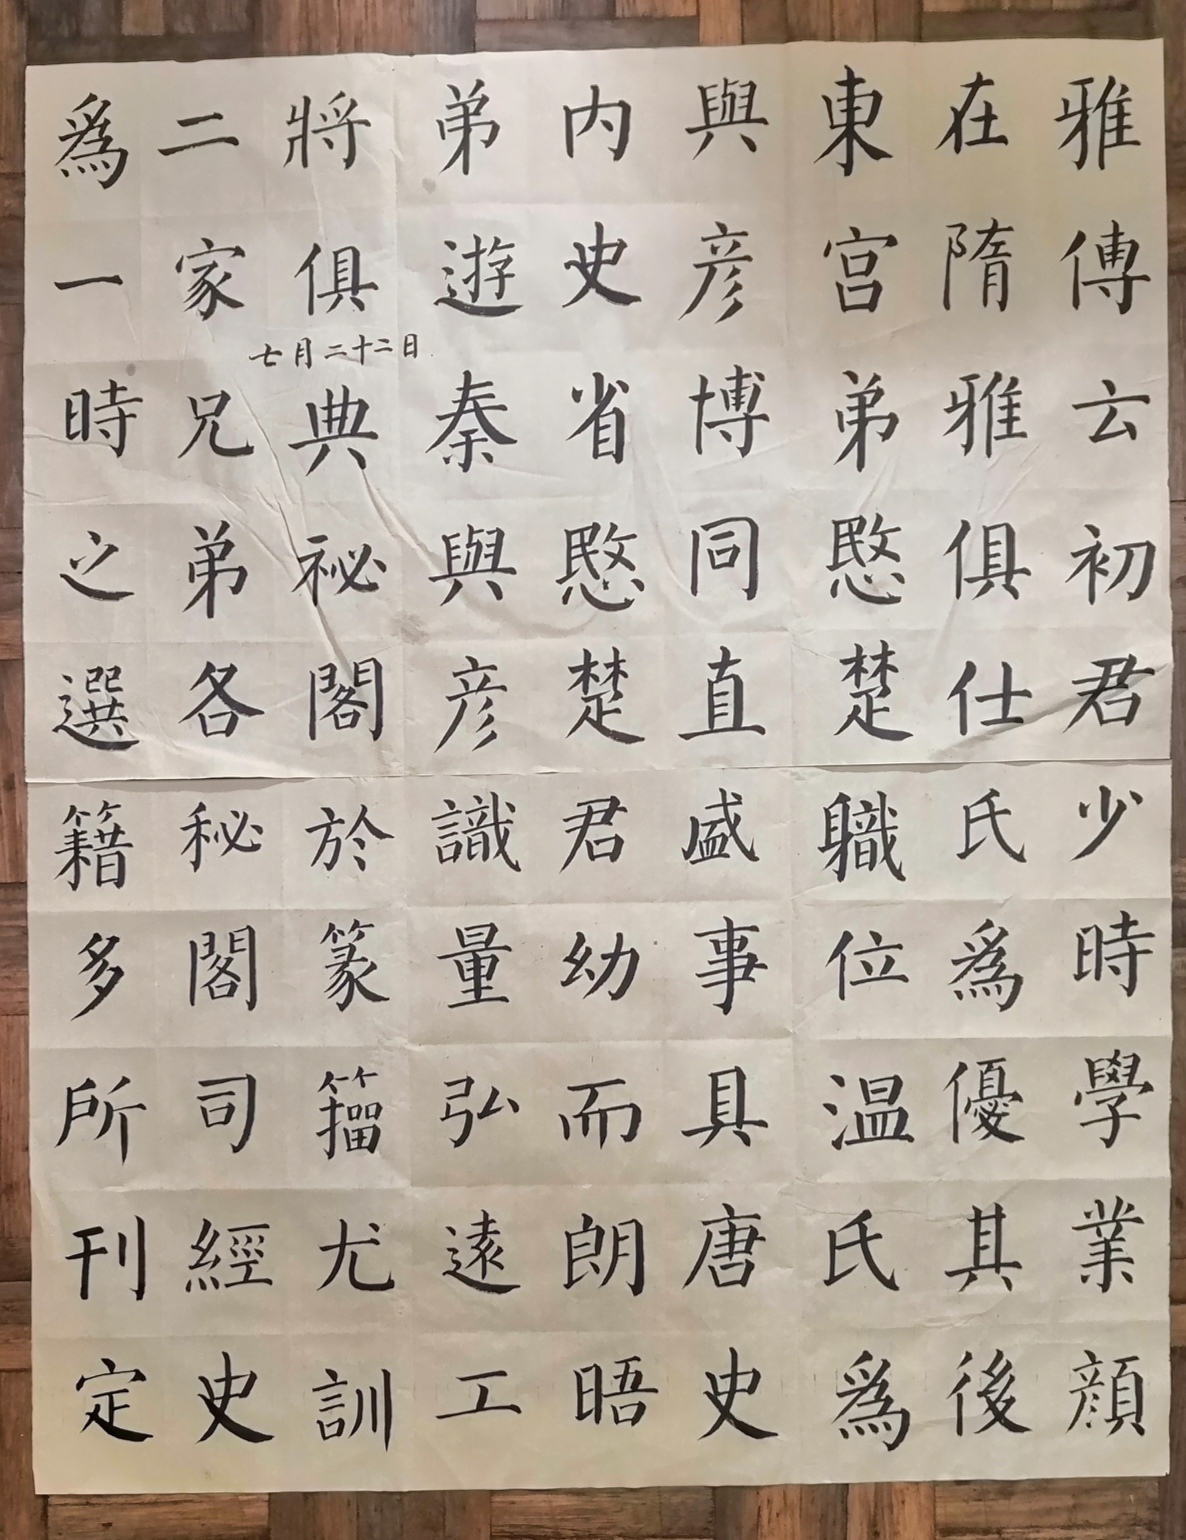 雅傳云初君少時學業顔
在隋雅俱仕氏爲優其後
東宮弟愍楚職位温氏爲
與彦博同直盛事具唐史
内史省愍楚君幼而朗晤
弟遊秦與彦識量弘遠工
將俱典祕閣於篆籀尤訓
二家兄弟各秘閣司經史
爲一時之選籍多所刊定
七月二十二日